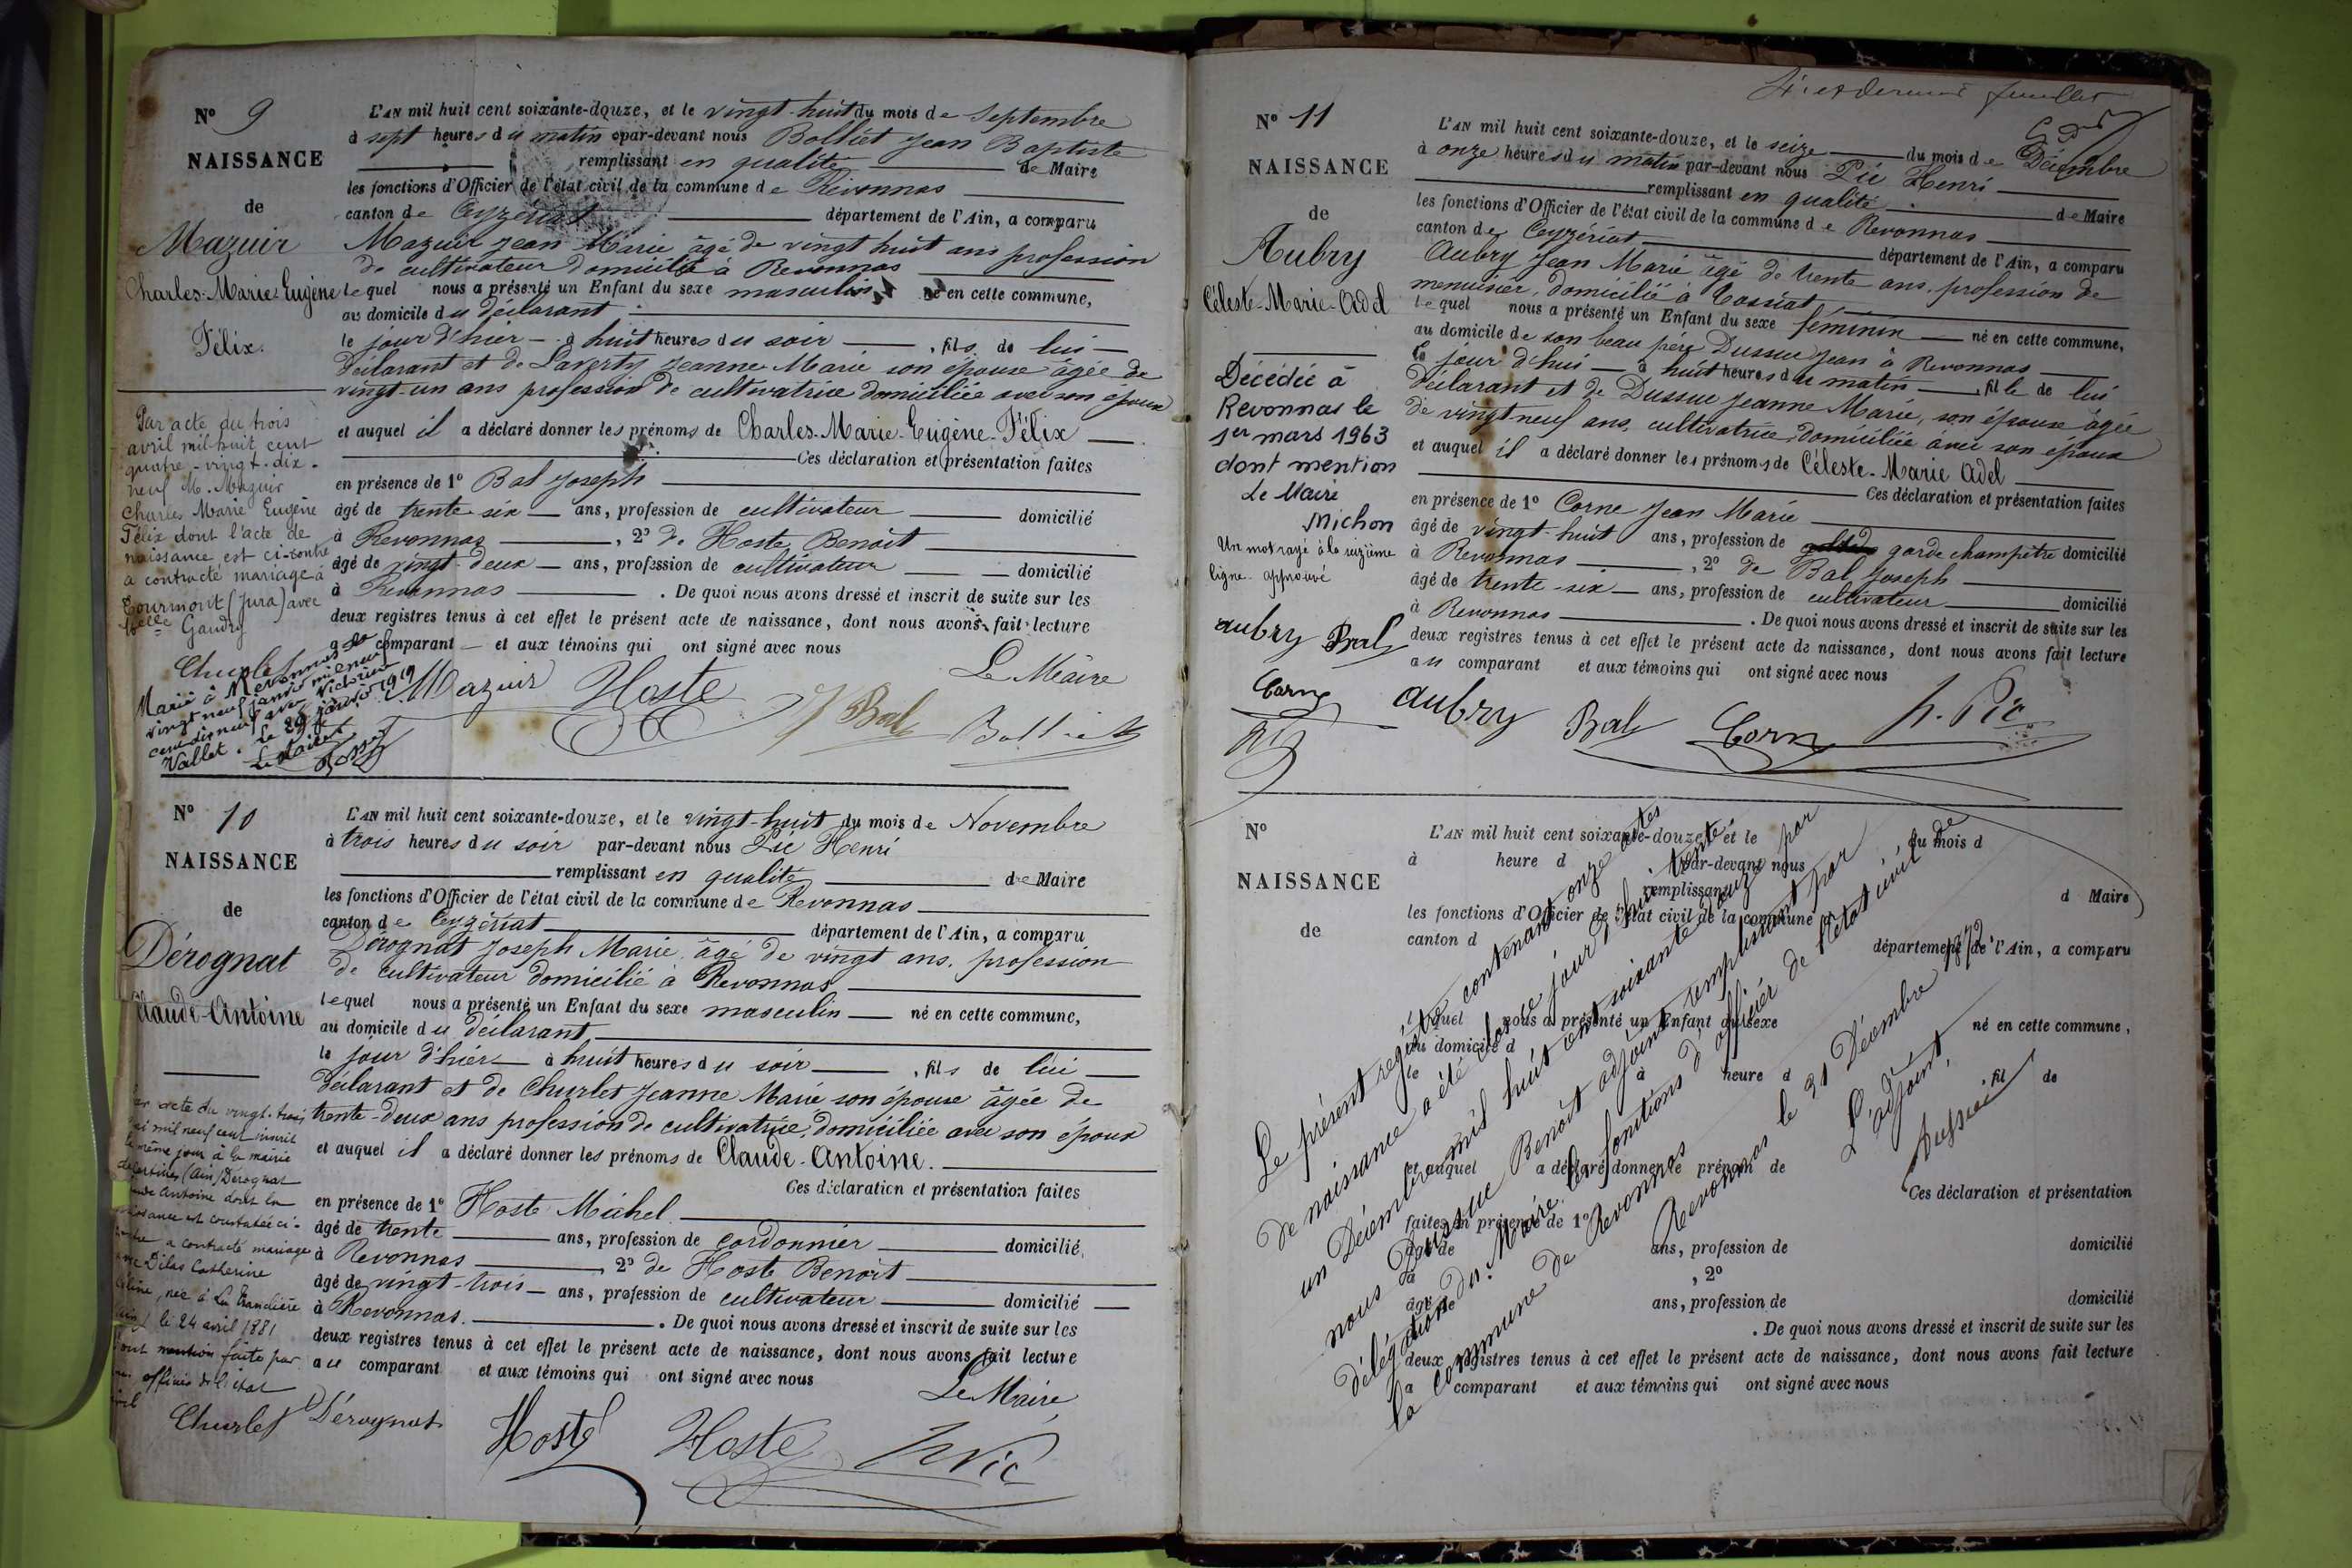 N° 9
NAISSANCE
de
Mazuir
Charles-Marie-Eugène
Félix.
Par acte du trois
avril mil huit cent
quatre-vingt-dix-
neuf M. Mazuir
Charles Marie Eugène
Félix dont l'acte de
naissance est ci-contre
a contracté mariage à
Tourmont (Jura) avec
Gaudry
Marié à
vingt neuf janvier mil neuf
cent dix neuf avec Victorine
Vallet. Le 29 janvier 1919
Le Maire
L'AN mil huit cent soixante-douze, et le vingt-huit du mois de Septembre
à sept heures du matin par-devant nous Bolliet Jean Baptiste
remplissant en qualité de Maire
les fonctions d'Officier de l'état civil de la commune de Revonnas
canton de Ceyzériat département de l'Ain, a comparu
Mazuir Jean Marie âgé de vingt huit ans profession
de cultivateur domicilié à Revonnas
lequel nous a présenté un Enfant du sexe masculin né en cette commune,
au domicile du déclarant
le jour d'hier à huit heures du soir, fils de lui
déclarant et de Laverty Jeanne Marie son épouse âgée de
vingt-un ans profession de cultivatrice domiciliée avec son époux
et auquel il a déclaré donner les prénoms de Charles-Marie-Eugène-Félix
Ces déclaration et présentation faites
en présence de 1° Bal Joseph
âgé de trente-six ans, profession de cultivateur domicilié
à Revonnas, 2° de Hoste Benoît
âgé de vingt-deux ans, profession de cultivateur domicilié
à Revonnas. De quoi nous avons dressé et inscrit de suite sur les
deux registres tenus à cet effet le présent acte de naissance, dont nous avons fait lecture
au comparant et aux témoins qui ont signé avec nous
Le Maire
Churlet Mazuir Hoste J Bal Bolliet
N° 10
NAISSANCE
de
Dérognat
Claude-Antoine
Par acte du vingt-trois
mai mil neuf cent inscrit
le même jour à la mairie
de Certines (Ain) Dérognat
Claude Antoine dont la
naissance est constatée ci-
contre a contracté mariage
avec Dilas Catherine
née à La Tranclière
(Ain) le 24 avril 1881
dont mention faite par
nous officier de l'état
civil
L'AN mil huit cent soixante-douze, et le vingt-huit du mois de Novembre
à trois heures du soir par-devant nous Pic Henri
remplissant en qualité de Maire
les fonctions d'Officier de l'état civil de la commune de Revonnas
canton de Ceyzériat département de l'Ain, a comparu
Dérognat Joseph Marie âgé de vingt ans, profession
de cultivateur domicilié à Revonnas
lequel nous a présenté un Enfant du sexe masculin né en cette commune,
au domicile du déclarant
le jour d'hier à huit heures du soir, fils de lui
déclarant et de Churlet Jeanne Marie son épouse âgée de
trente-deux ans profession de cultivatrice, domiciliée avec son époux
et auquel il a déclaré donner les prénoms de Claude-Antoine.
Ces déclaration et présentation faites
en présence de 1° Hoste Michel
âgé de trente ans, profession de cordonnier domicilié
à Revonnas, 2° de Hoste Benoît
âgé de vingt-trois ans, profession de cultivateur domicilié
à Revonnas. De quoi nous avons dressé et inscrit de suite sur les
deux registres tenus à cet effet le présent acte de naissance, dont nous avons fait lecture
au comparant et aux témoins qui ont signé avec nous
Le Maire
Churlet Dérognat Hoste Hoste H Pic
dernier feuillet
N° 11
NAISSANCE
de
Aubry
Céleste-Marie-Adel
Décédée à
Revonnas le
1er mars 1963
dont mention
Le Maire
Michon
Un mot rayé à la seizième
ligne approuvé
aubry Bal
Corne
L'AN mil huit cent soixante-douze, et le seize du mois de Décembre
à onze heures du matin par-devant nous Pic Henri
remplissant en qualité de Maire
les fonctions d'Officier de l'état civil de la commune de Revonnas
canton de Ceyzériat département de l'Ain, a comparu
Aubry Jean Marie âgé de trente ans, profession de
menuisier, domicilié à Tossiat
lequel nous a présenté un Enfant du sexe féminin né en cette commune,
au domicile de son beau père Dussuc Jean à Revonnas
le jour d'hui à huit heures du matin, fille de lui
déclarant et de Dussuc Jeanne Marie, son épouse âgée
de vingt neuf ans, cultivatrice, domiciliée avec son époux
et auquel il a déclaré donner les prénoms de Céleste-Marie Adel
Ces déclaration et présentation faites
en présence de 1° Corne Jean Marie
âgé de vingt-huit ans, profession de garde champêtre domicilié
à Revonnas, 2° de Bal Joseph
âgé de trente-six ans, profession de cultivateur domicilié
à Revonnas. De quoi nous avons dressé et inscrit de suite sur les
deux registres tenus à cet effet le présent acte de naissance, dont nous avons fait lecture
au comparant et aux témoins qui ont signé avec nous
aubry Bal Corne h. Pic
N°
NAISSANCE
de
L'AN mil huit cent soixante-douze, et le du mois d
à heure d par-devant nous
remplissant d Maire
les fonctions d'Officier de l'état civil de la commune d
canton d département de l'Ain, a comparu
lequel nous a présenté un Enfant du sexe né en cette commune,
au domicile d
le à heure d, fil de
et auquel a déclaré donner le prénom de
Ces déclaration et présentation
faites en présence de 1°
âgé de ans, profession de domicilié
à, 2°
âgé de ans, profession de domicilié
à. De quoi nous avons dressé et inscrit de suite sur les
deux registres tenus à cet effet le présent acte de naissance, dont nous avons fait lecture
a comparant et aux témoins qui ont signé avec nous
Le présent registre contenant onze actes
de naissance a été clos ce jour d'hui trente
un Décembre mil huit cent soixante douze par
nous Dussuc Benoît adjoint remplissant par
délégation du Maire les fonctions d'officier de l'état civil de
la commune de Revonnas
Revonnas le 31 Décembre 1872
L'adjoint,
Dussuc